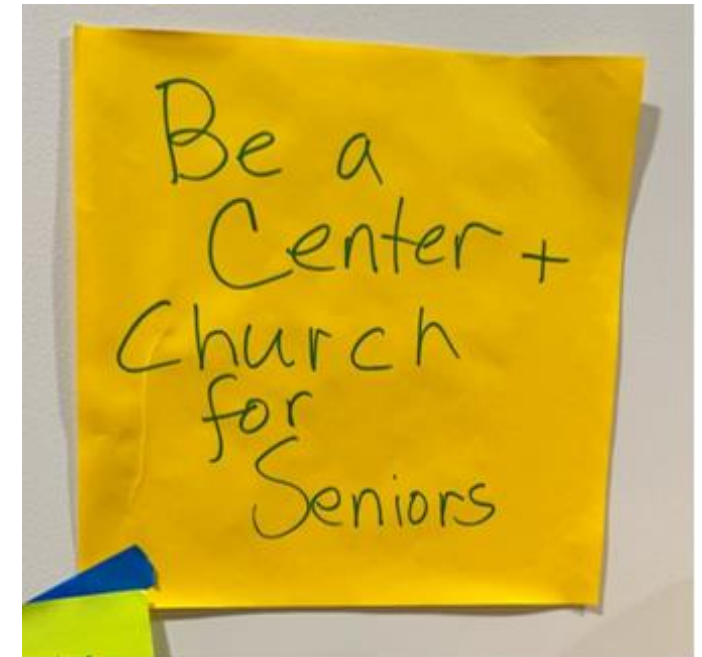 Be a
Center +
Church
for
Seniors